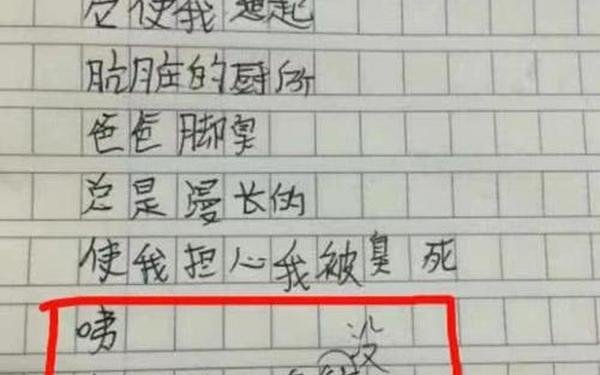 使我想起
肮脏的厨所
爸爸脚臭
总是漫长的
使我担心我被臭死
咦
没